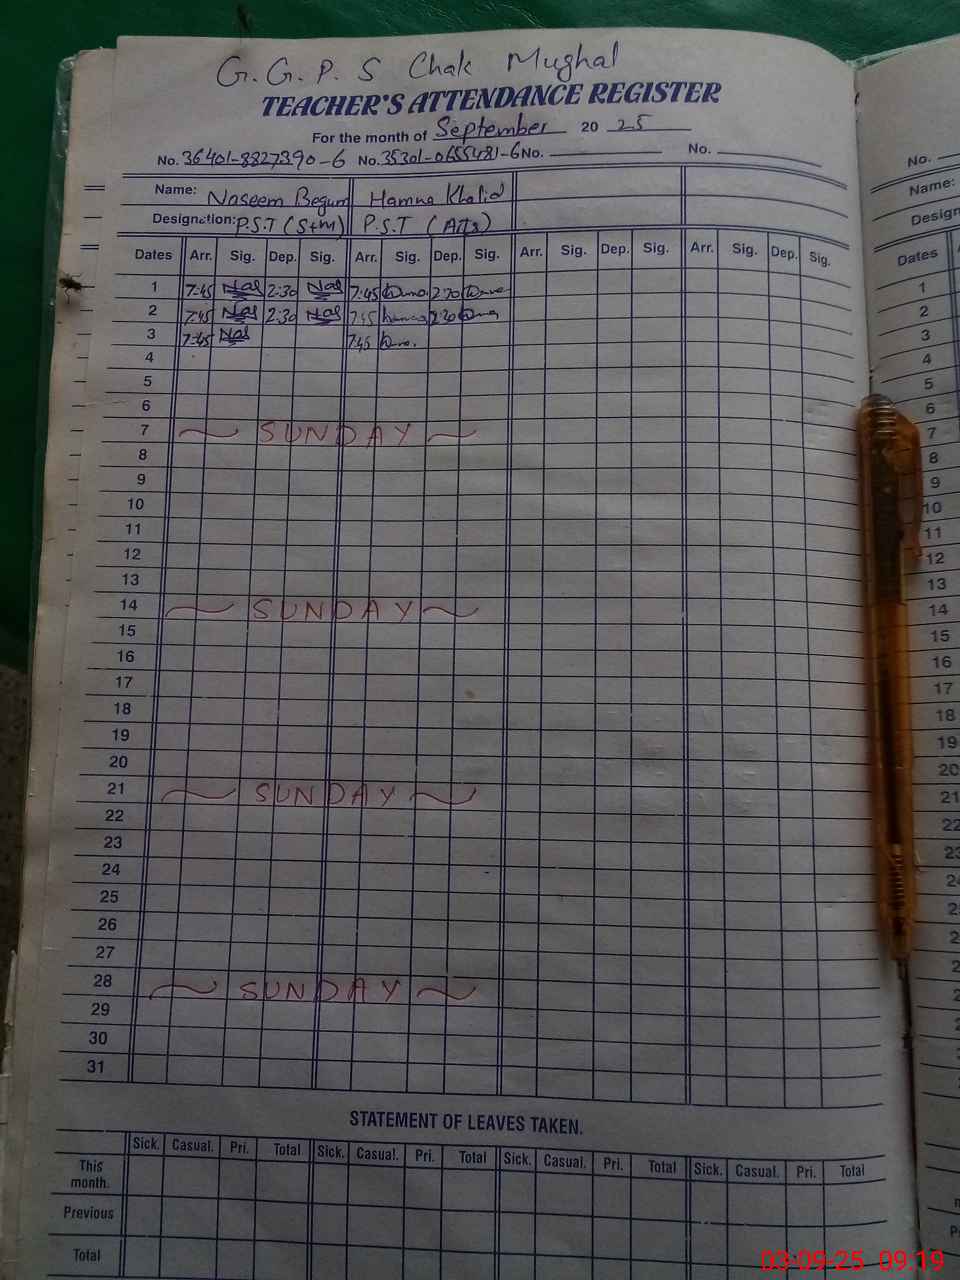 G. G. P. S Chak Mughal
TEACHER'S ATTENDANCE REGISTER
For the month of September 20 25
No. 36401-8827390-6 No. 35301-0655481-6 No. No.
Name: Naseem Begum Hamna Khalid
Designation: P.S.T (S+M) P.S.T (Arts)
Dates Arr. Sig. Dep. Sig. Arr. Sig. Dep. Sig. Arr. Sig. Dep. Sig. Arr. Sig. Dep. Sig.
1 7:45 Nas 2:30 Nas 7:45 2:30
2 7:45 Nas 2:30 Nas 7:45 2:30
3 7:45 Nas 7:45
4
5
6
7 SUNDAY
8
9
10
11
12
13
14 SUNDAY
15
16
17
18
19
20
21 SUNDAY
22
23
24
25
26
27
28 SUNDAY
29
30
31
STATEMENT OF LEAVES TAKEN.
Sick. Casual. Pri. Total Sick. Casual. Pri. Total Sick. Casual. Pri. Total Sick. Casual. Pri. Total
This
month.
Previous
Total
No.
Name:
Design
Dates
1
2
3
4
5
6
7
8
9
10
11
12
13
14
15
16
17
18
19
20
21
22
23
03-09-25 09:19